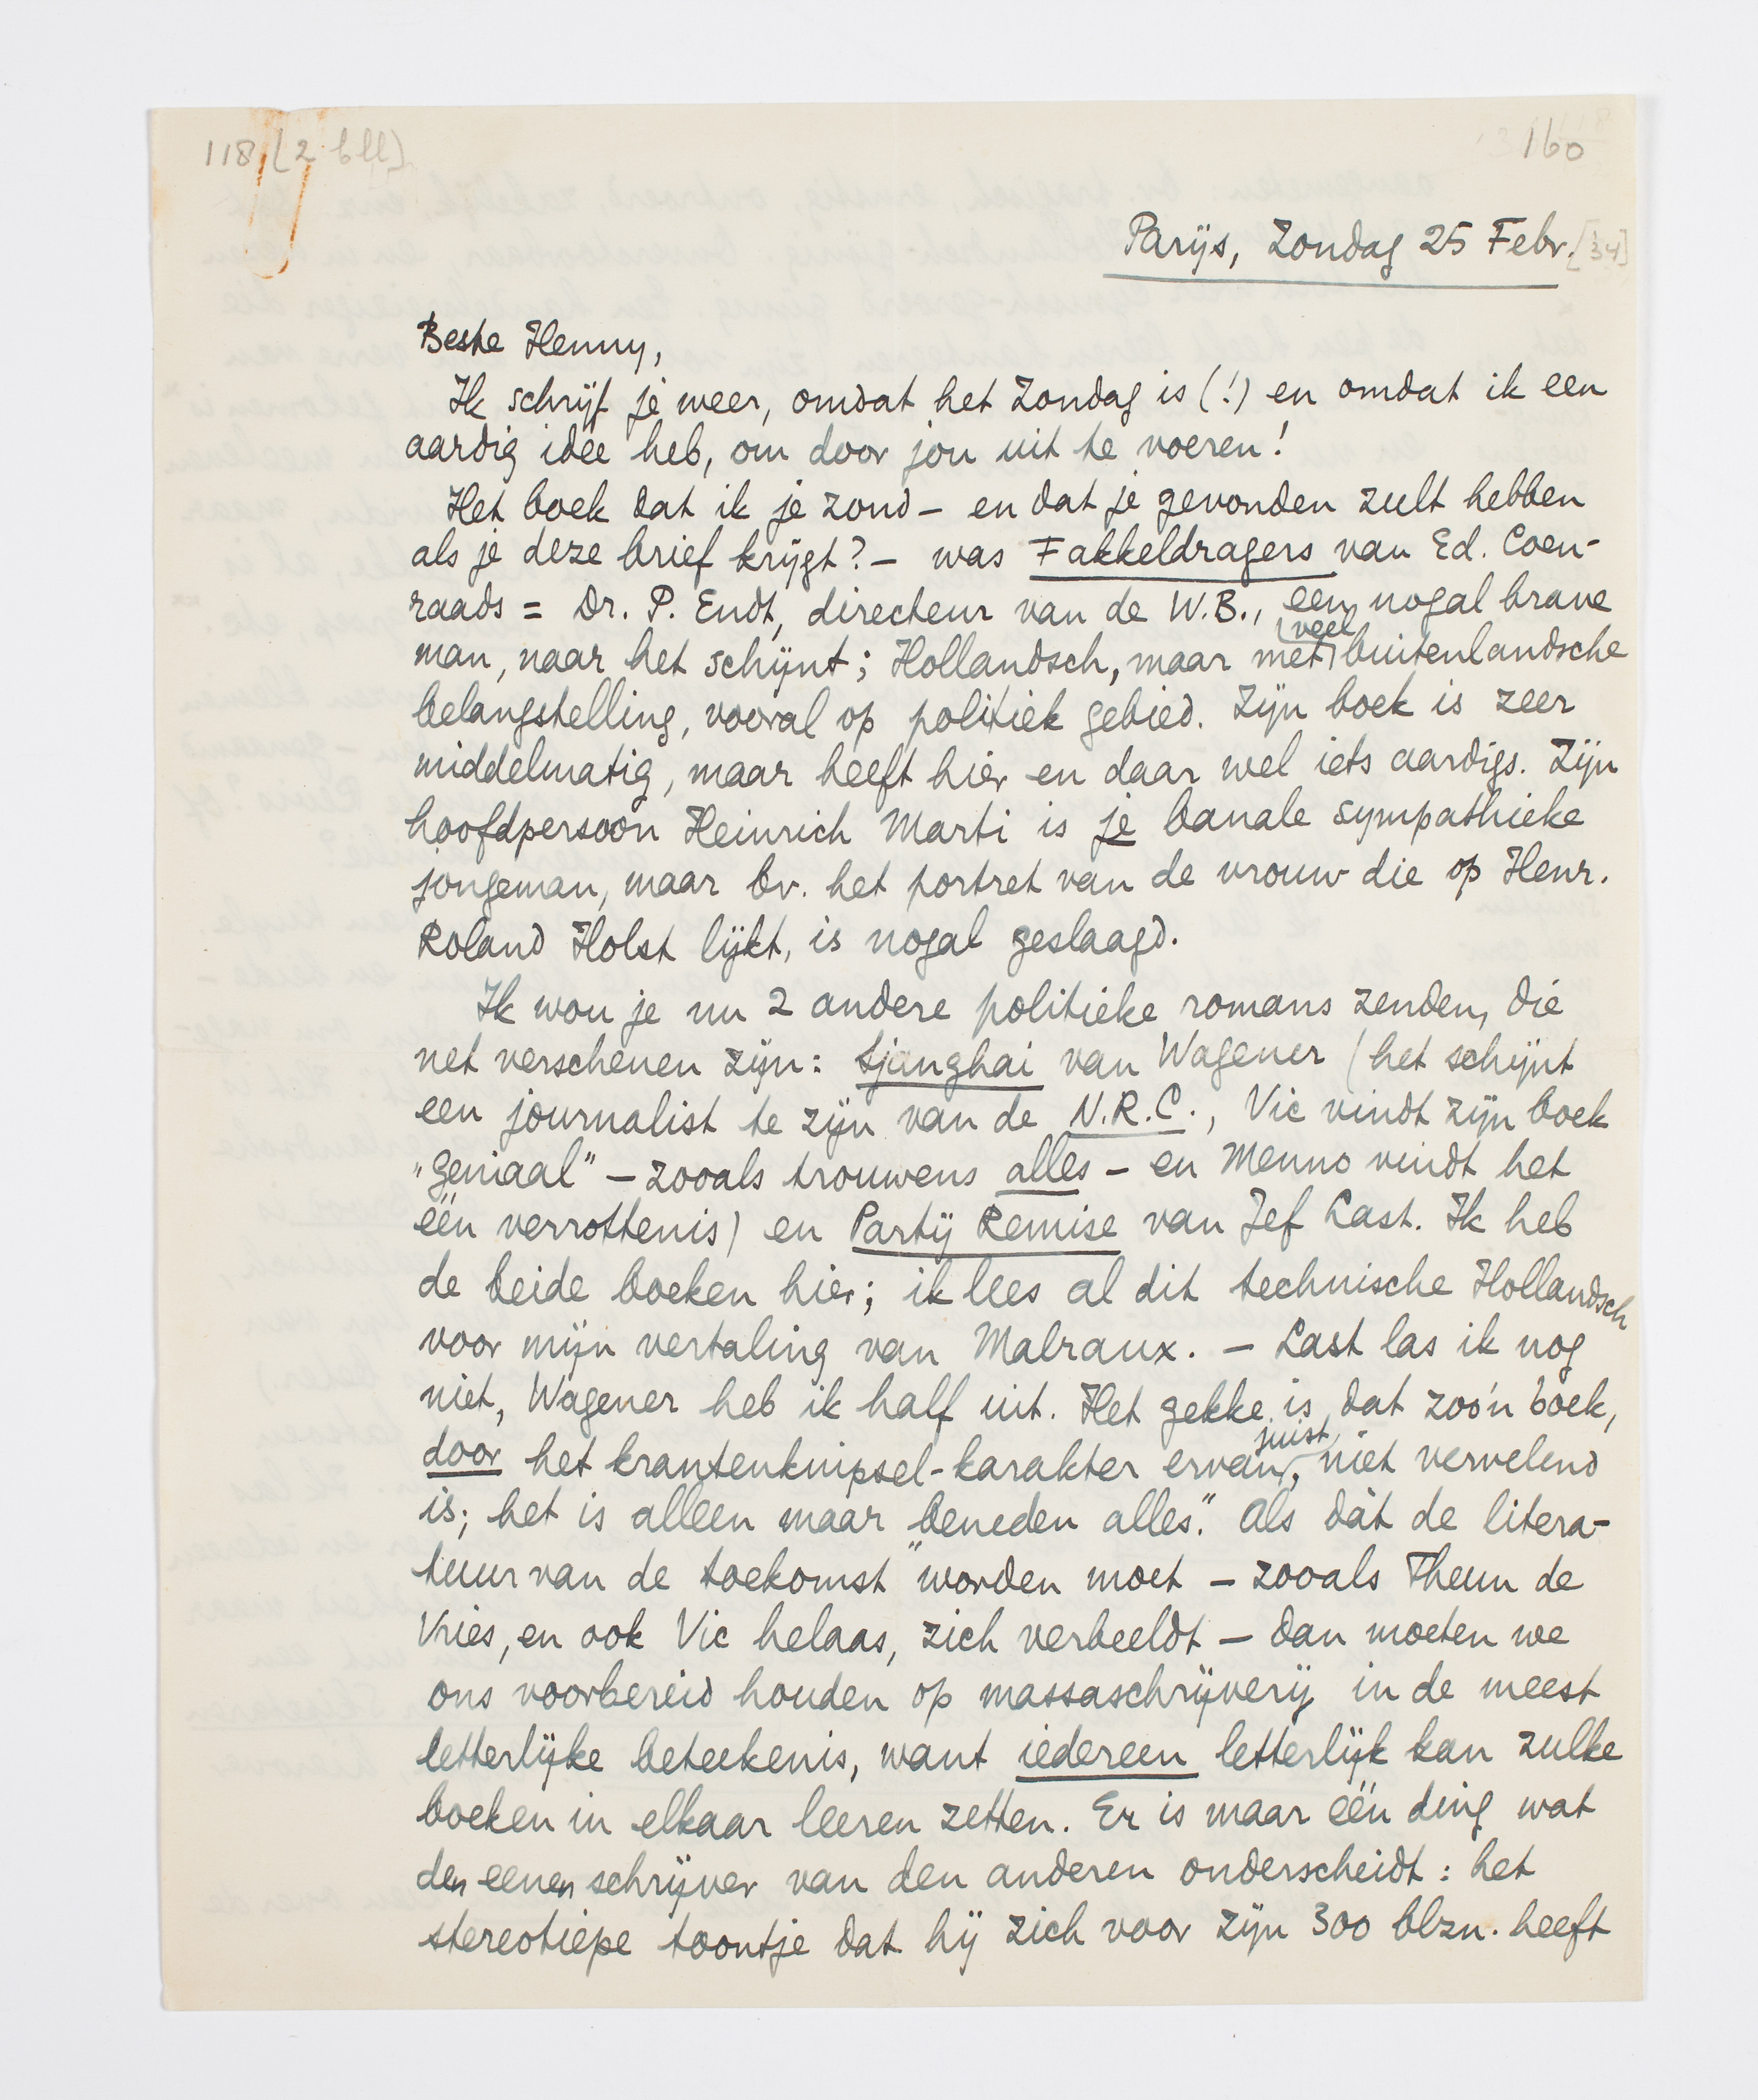 118 [2 bll]
160
Parijs, Zondag 25 Febr. [34]
Beste Henny,
Ik schrijf je weer, omdat het Zondag is (!) en omdat ik een
aardig idee heb, om door jou uit te voeren!
Het boek dat ik je zond – en dat je gevonden zult hebben
als je deze brief krijgt? – was Fakkeldragers van Ed. Coen-
raads = Dr. P. Endt, directeur van de W.B., een nogal brave
man, naar het schijnt; Hollandsch, maar met veel buitenlandsche
belangstelling, vooral op politiek gebied. Zijn boek is zeer
middelmatig, maar heeft hier en daar wel iets aardigs. Zijn
hoofdpersoon Heinrich Marti is je banale sympathieke
jongeman, maar bv. het portret van de vrouw die op Henr.
Roland Holst lijkt, is nogal geslaagd.
Ik wou je nu 2 andere politieke romans zenden, die
net verschenen zijn: Sjanghai van Wagener (het schijnt
een journalist te zijn van de N.R.C., Vic vindt zijn boek
„geniaal" – zooals trouwens alles – en Menno vindt het
één verrottenis) en Partij Remise van Jef Last. Ik heb
de beide boeken hier; ik lees al dit technische Hollandsch
voor mijn vertaling van Malraux. – Last las ik nog
niet, Wagener heb ik half uit. Het gekke is, dat zoo'n boek,
door het krantenknipsel-karakter ervan juist, niet vervelend
is; het is alleen maar „beneden alles". Als dàt de litera-
tuur van de toekomst worden moet – zooals Theun de
Vries, en ook Vic helaas, zich verbeeldt – dan moeten we
ons voorbereid houden op massaschrijverij in de meest
letterlijke beteekenis, want iedereen letterlijk kan zulke
boeken in elkaar leeren zetten. Er is maar één ding wat
den eenen schrijver van den anderen onderscheidt: het
stereotiepe toontje dat hij zich voor zijn 300 blzn. heeft